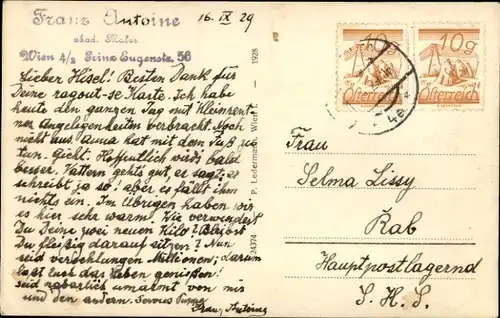 Franz Antoine
akad. Maler
Wien 4/2 Prinz Eugenstr. 56
16. IX 29
Lieber Hisel! Besten Dank für
Deine ragout-se Karte. Ich habe
heute den ganzen Tag mit Kleinrent
ner Angeligenheiten verbracht. Noch
nicht aus. Anna hat mit dem Fuß zu
tun. Gicht. Hoffentlich wirds bald
besser. Vattern gehts gut, er sagt; er
schreibt ja so! aber es fällt ihm
nichts ein. Im Übrigen haben wir
es hier sehr warm. Wie verwendest
Du Deine zwei neuen Kilo? Bleibst
Du fleißig darauf sitzen? Nun
seid Millionen; darum
laßt Euch das Leben genießen!
seid umarmt von mir
und den andern. Servus
Franz Antoine
24374 P. Ledermann, Wien I. - 1928
10g 10g
Österreich Österreich
Frau
Selma Lissy
Rab
Hauptpostlagernd
S. H. S.